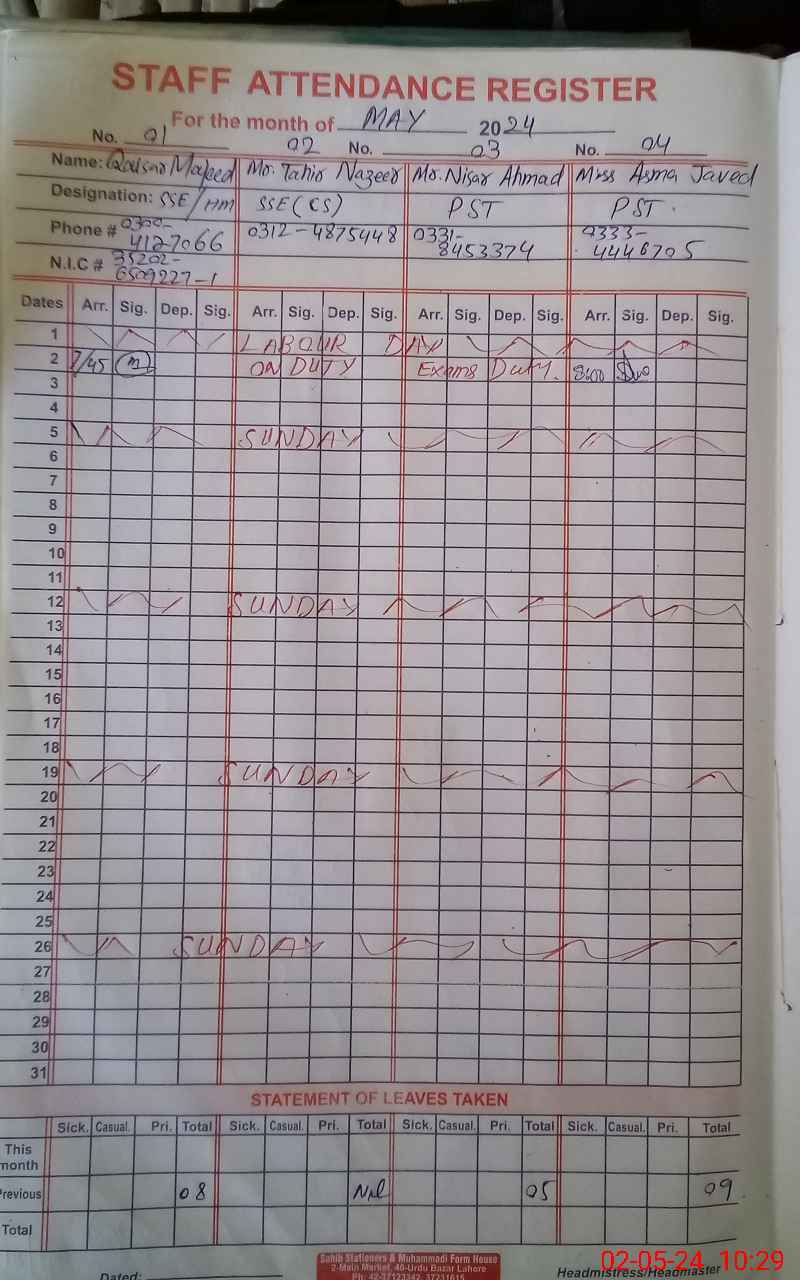 STAFF ATTENDANCE REGISTER
For the month of MAY 2024
No. 01 02 No. 03 No. 04
Name: Qaisar Majeed Mr. Tahir Nazeer Mr. Nisar Ahmad Miss Asma Javed
Designation: SSE/HM SSE(CS) PST PST.
Phone # 0300-4127066 0312-4875448 0331-8453374 0333-4446705
N.I.C # 35202-6509227-1
Dates Arr. Sig. Dep. Sig. Arr. Sig. Dep. Sig. Arr. Sig. Dep. Sig. Arr. Sig. Dep. Sig.
1 LABOUR DAY
2 7/45 ON DUTY Exams Duty.
3
4
5 SUNDAY
6
7
8
9
10
11
12 SUNDAY
13
14
15
16
17
18
19 SUNDAY
20
21
22
23
24
25
26 SUNDAY
27
28
29
30
31
STATEMENT OF LEAVES TAKEN
Sick. Casual. Pri. Total Sick. Casual. Pri. Total Sick. Casual. Pri. Total Sick. Casual. Pri. Total
This month
Previous 08 Nil 05 09
Total
Sahib Stationers & Muhammadi Form House
2-Main Market, 40-Urdu Bazar Lahore
Ph: 42-37123342, 37231615
Dated: Headmistress/Headmaster
02-05-24 10:29